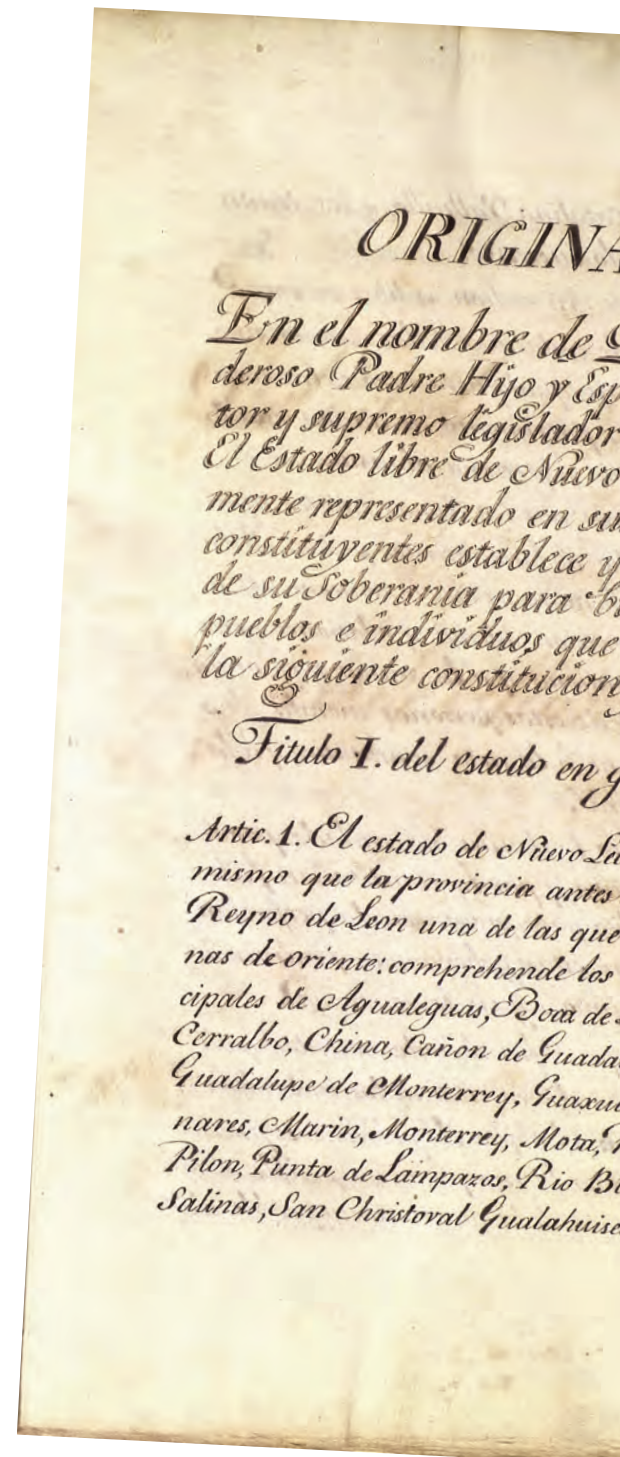 ORIGINA
En el nombre de D
deroso Padre Hijo y Esp
tor y supremo legislador
El Estado libre de Nuevo
mente representado en su
constituyentes establece y
de su Soberania para
pueblos e individuos que
la siguiente constitucion
Titulo I. del estado en g
Artic. 1. El estado de Nuevo Le
mismo que la provincia antes
Reyno de Leon una de las que
nas de oriente: comprehende los
cipales de Agualeguas, Boca de
Cerralbo, China, Cañon de Guada
Guadalupe de Monterrey, Guaxu
nares, Marin, Monterrey, Mota,
Pilon, Punta de Lampazos, Rio Bl
Salinas, San Christoval Gualahuise